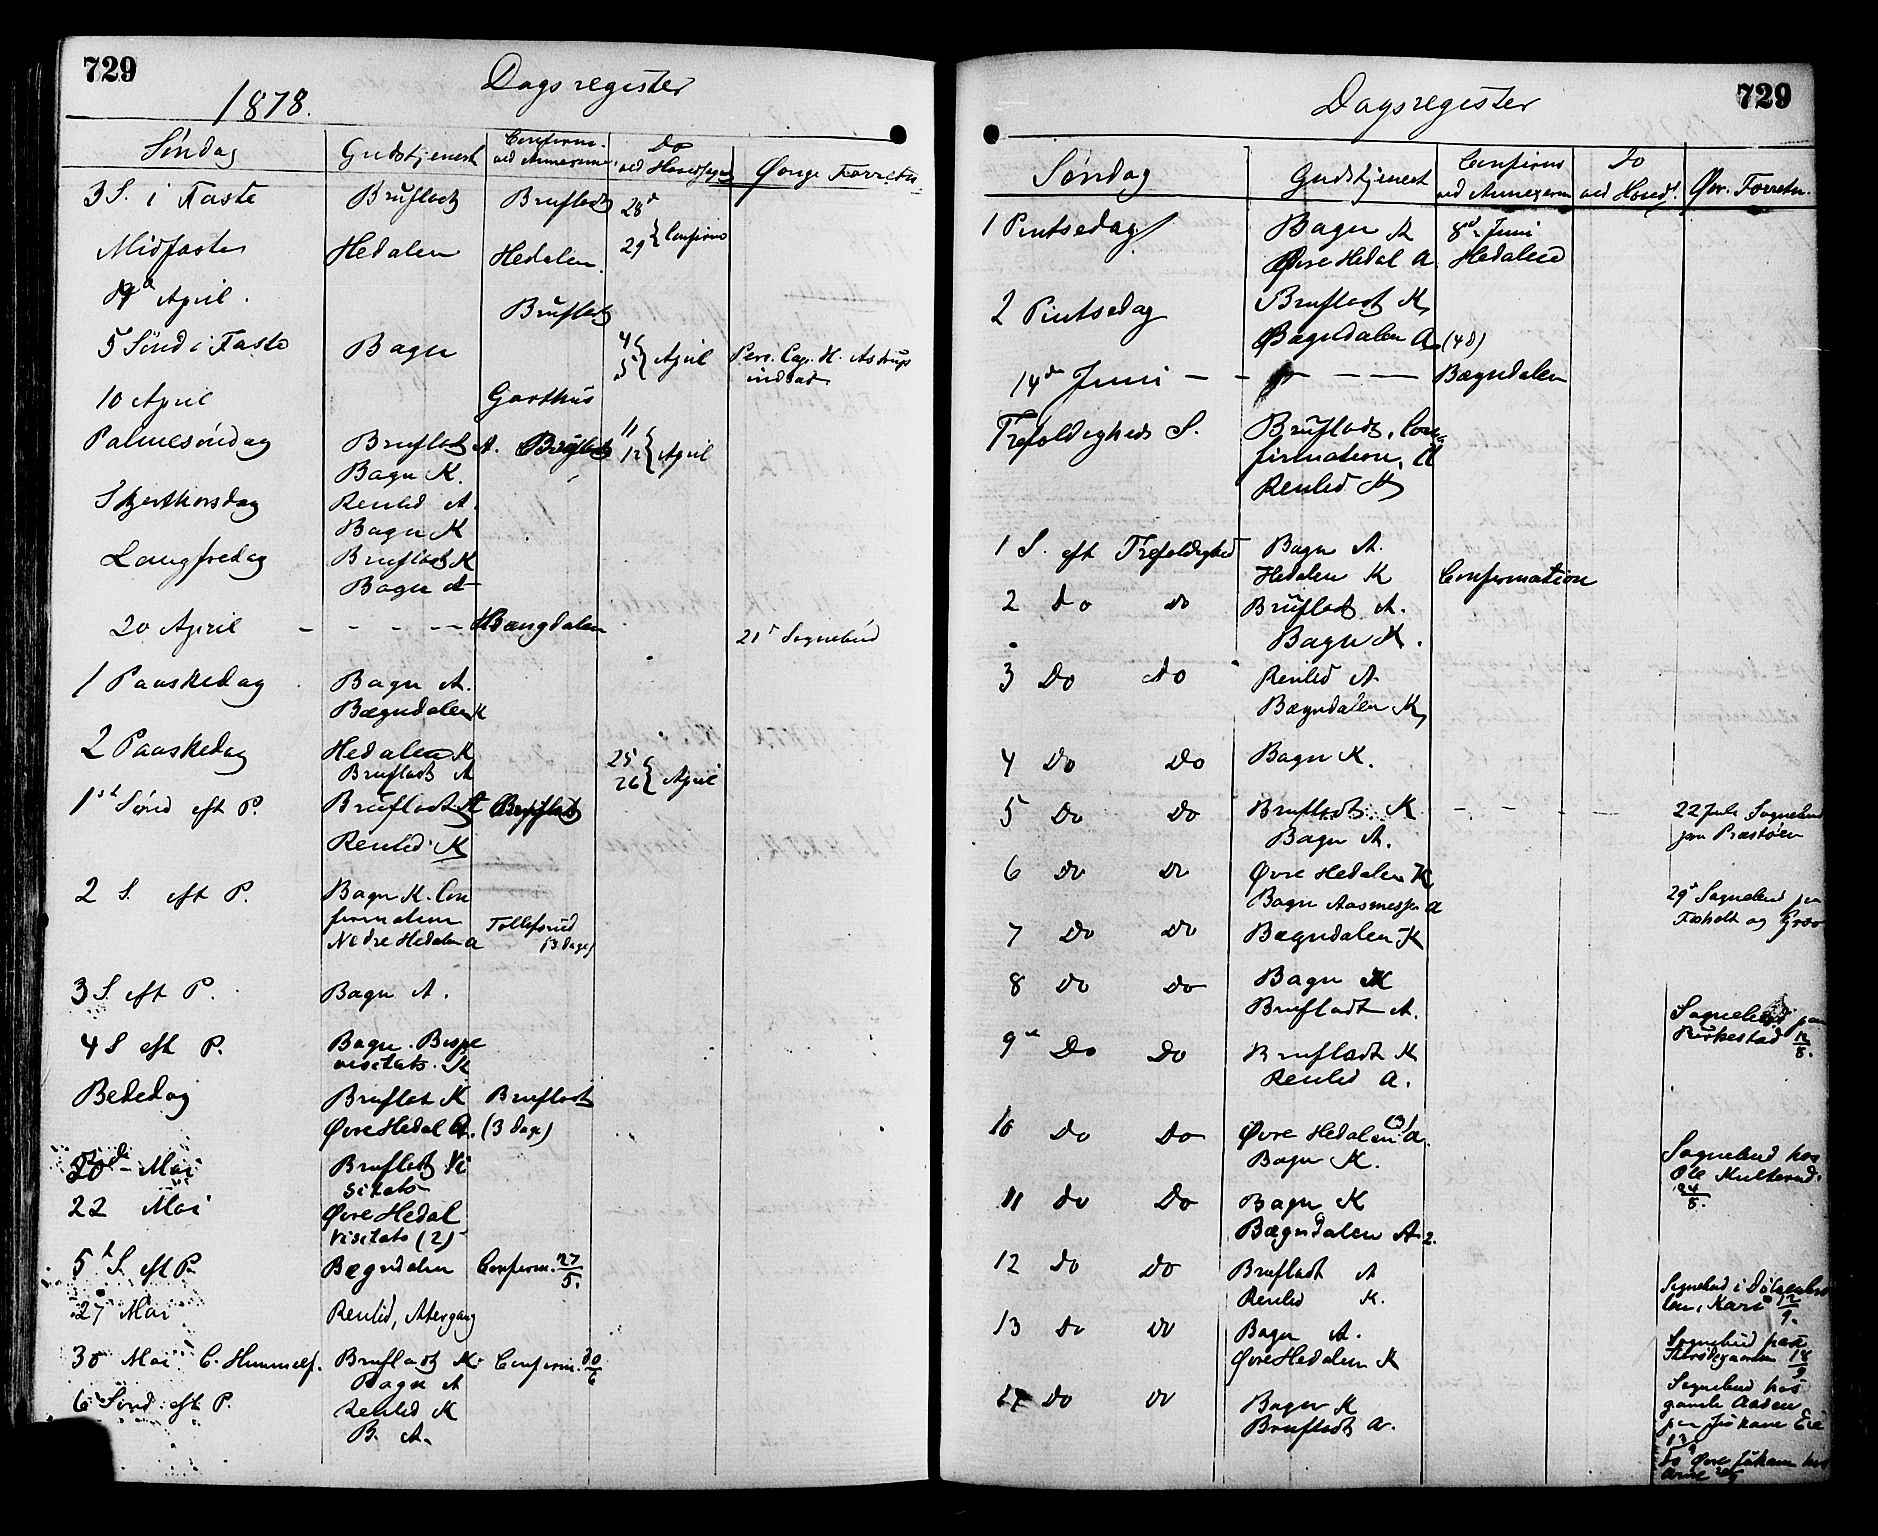 729
Dagsregister
1878.
Søndag Gudstjenest Confirm. ved Annexerne Do ved Hovedsogn Øvrige Forretn.
3 S. i Faste Bruflat Bruflat 28d
Midfaste Hedalen Hedalen. 29 Confirm
April. Bruflat
5 Sönd i Faste Bagn 4 5 April Pers. Cap. H. Astrup indsat
10 April Garthus
Palmesøndag Bruflat A. Bruflat 11 12 April
Bagn K.
Skjerthorsdag Renlid A.
Bagn K
Langfredag Bruflat K
Bagn A
20 April - - - - Bangdalen 21d Sognebud
1 Paaskedag Bagn A.
Bægndalen K
2 Paaskedag Hedalen K 25 26 April
Bruflat A
1st Sønd eft P. Bruflat A Bruflat
Renlid K
2 S. eft P. Bagn K. Con
firmation Tollefsrud
Nedre Hedalen A (3 dage)
3 S. eft P. Bagn A.
4 S eft P. Bagn. Bispe
visitats. K
Bededag Bruflat K Bruflat
Øvre Hedal A. (3 dage)
20de Mai Bruflat Vi
sitats
22 Mai Øvre Hedal
Visitats (2)
5t S. eft P. Bægndalen Confirm. 27/5.
27 Mai Renlid, Altergang
30 Mai C. Himmelf. Bruflat K. Confirm. 30/6
Bagn A
6 Sönd. eft P. Renlid K
B. A.
729
Dagsregister
Søndag Gudstjenest Confirm ved Annexerne Do ved Hovds. Øvr. Forretn.
1 Pintsedag Bagn K 8d Juni
Øvre Hedal A. Hedalen
2 Pintsedag Bruflat K
Bægndalen A (48)
14de Juni - - - - Bægndalen
Trefoldigheds S. Bruflat. Con
firmation, A
Renlid K
1 S. eft Trefoldighed Bagn A.
Hedalen K Confirmation
2 Do Do Bruflat A.
Bagn K.
3 Do Do Renlid A.
Bægndalen K
4 Do Do Bagn K.
5 Do Do Bruflat K - - - - 22 Juli Sognebud
Bagn A. paa Præstøen
6 Do Do Øvre Hedalen K
Bagn Aasmesse A 29d Sognebud paa
Foholt og
7 Do Do Bægndalen K
8 Do Do Bagn K
Bruflat A. Sognebud paa
Birkestad 12/8.
9de Do Do Bruflat K
Renlid A.
10 Do Do Øvre Hedalen (3) A.
Bagn K. Sognebud hos
Ole
24/8.
11 Do Do Bagn K
Bægndalen A 2.
12 Do Do Bruflat A
Renlid K. Sognebud i
Kari 12/9.
13 Do Do Bagn A.
Øvre Hedalen K Sognebud paa
18/9
14 Do Do Bagn K Sognebud hos
Bruflat A. gamle
paa Eie
13/9
Do Øvre hos